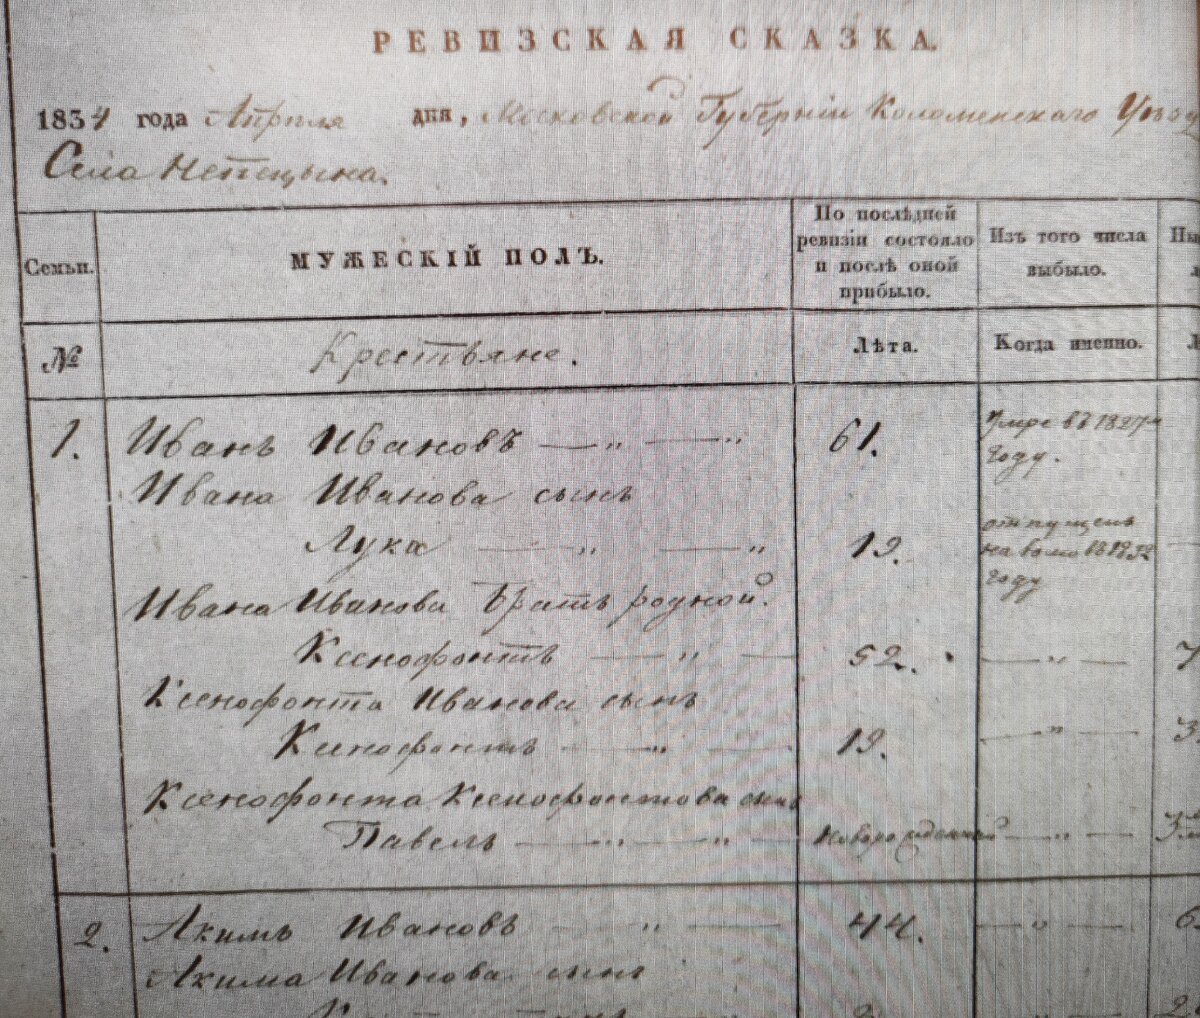 РЕВИЗСКАЯ СКАЗКА.
1834 года Апреля дня, Московской Губернiи Коломенскаго Уѣзд
Села Непецына.
Семьи.
МУЖЕСКIЙ ПОЛЪ.
По послѣдней ревизiи состояло и послѣ оной прибыло.
Изъ того числа выбыло.
№
Крестьяне.
Лѣта.
Когда именно.
1. Иванъ Ивановъ — „ — „ 61. Умре въ 1827м году.
Ивана Иванова сынъ
Лука — „ — „ 19. отпущенъ на волю въ 1832 году
Ивана Иванова братъ родной.
Ксенофонтъ — „ — 52. — „ — 7
Ксенофонта Иванова сынъ
Ксенофонтъ — „ — 19. — „ — 3
Ксенофонта Ксенофонтова сынъ
Павелъ — „ — „ — Новорожденный — „ —
2. Акимъ Ивановъ — „ — 44. — „ — 6
Акима Иванова сынъ